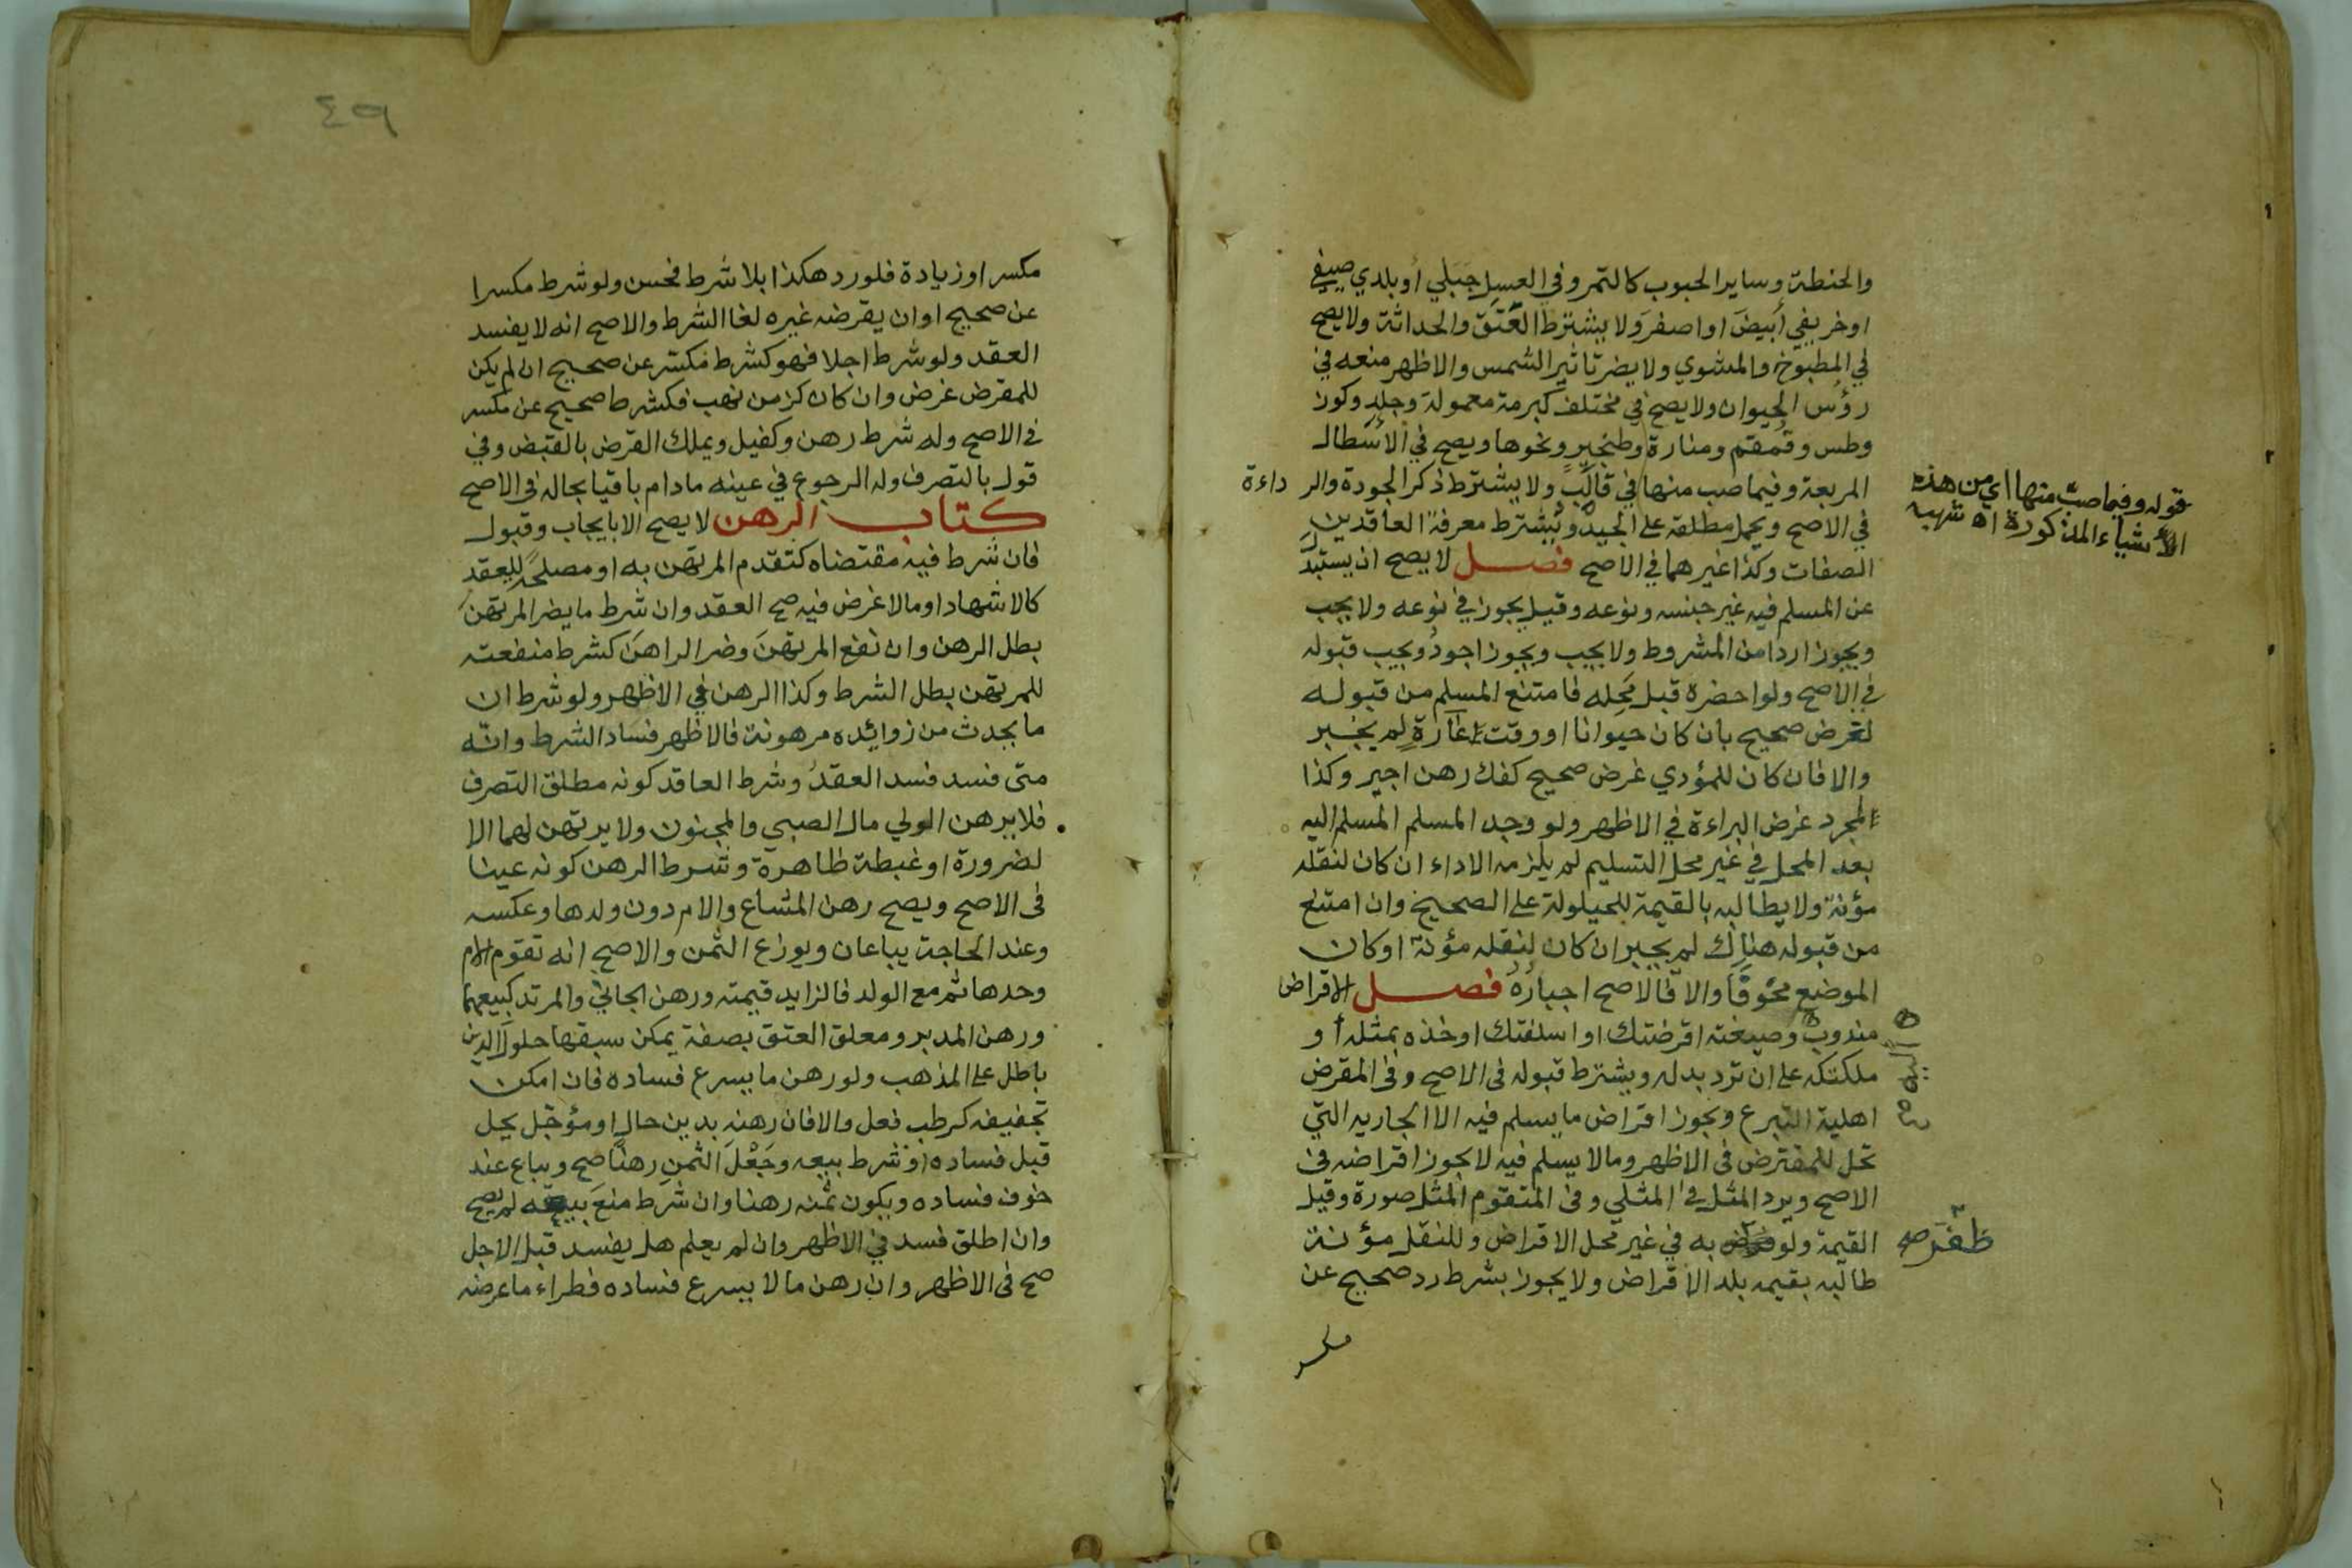 والحنطة وساير الحبوب كالتمر وفي العسل جَبَلي أو بلدي صيفي
او خريفي أبيضَ او اصفرَ ولا يشترط العُتَق والحداثة ولا يصح
في المطبوخ والمشوي ولا يضر تاثير الشمس والاظهر منعه في
رؤس الحيوان ولا يصح في مختلف كبرمة معمولة وجلد وكوز
وطس وقُمقم ومنارة وطنجير ونحوها ويصح في الأسطال
المربعة وفيما صب منها في قالَبٍ ولا يشترط ذكر الجودة والرداءة
في الاصح ويحمل مطلقه على الجيد ويُشترط معرفة العاقدين
الصفات وكذا غيرهما في الاصح فصل لا يصح ان يستبدَل
عن المسلم فيه غير جنسه ونوعه وقيل يجوز في نوعه ولا يجب
ويجوز اردا من المشروط ولا يجب ويجوز اجودُ ويجب قبوله
في الاصح ولو احضره قبل مَحِله فامتنع المسلم من قبوله
لغرض صحيح بان كان حيوانا او وقت إغارةٍ لم يجبر
والا فان كان للمؤدي غرض صحيح كفك رهن اجبر وكذا
لمجرد غرض البراءة في الاظهر ولو وجد المسلم المسلم اليه
بعد المحل في غير محل التسليم لم يلزمه الاداء ان كان لنقله
مؤنة ولا يطالبه بالقيمة للحيلولة على الصحيح وان امتنع
من قبوله هناك لم يجبر ان كان لنقله مؤنة او كان
الموضع مخوفاً والا فالاصح اجبارُهُ فصل الاقراض
مندوب وصيغته اقرضتك او اسلفتك او خذه بمثله أو
ملكتكه على ان ترد بدله ويشترط قبوله في الاصح وفي المقرض
اهلية التبرع ويجوز اقراض ما يسلم فيه الا الجاريه التي
تحل للمقترض في الاظهر وما لا يسلم فيه لا يجوز اقراضه في
الاصح ويرد المثل في المثلي وفي المتقوم المثل صورة وقيل
القيمة ولو به في غير محل الاقراض وللنقل مؤنة
طالبه بقيمه بلد الاقراض ولا يجوز بشرط رد صحيح عن
مكسر
قوله وفيما صبّ منها اي من هذه
الأشياء المذكورة اه
ظَفَرَ صح
٤٩
مكسر او زيادة فلو رد هكذا بلا شرط فحسن ولو شرط مكسرا
عن صحيح او ان يقرضه غيره لغا الشرط والاصح انه لا يفسد
العقد ولو شرط اجلا فهو كشرط مكسر عن صحيح ان لم يكن
للمقرض غرض وان كان كزمن نهب فكشرط صحيح عن مكسر
في الاصح وله شرط رهن وكفيل ويملك القرض بالقبض وفي
قول بالتصرف وله الرجوع في عينه ما دام باقيا بحاله في الاصح
كتاب الرهن لا يصح الا بايجاب وقبول
فان شرط فيه مقتضاه كتقدم المرتهن به او مصلحةً للعقد
كالاشهاد او ما لا غرض فيه صح العقد وان شرط ما يضر المرتهنَ
بطل الرهن وان نفع المرتهنَ وضر الراهنَ كشرط منفعته
للمرتهن بطل الشرط وكذا الرهن في الاظهر ولو شرط ان
ما يحدث من زوائده مرهونة فالاظهر فساد الشرط وانّه
متى فسد فسد العقدُ وشرط العاقد كونه مطلق التصرف
فلا يرهن الولي مال الصبي والمجنون ولا يرتهن لهما الا
لضرورة او غبطة ظاهرة وشرط الرهن كونه عينا
في الاصح ويصح رهن المشاع والام دون ولدها وعكسه
وعند الحاجة يباعان ويوزع الثمن والاصح انه تقوم الام
وحدها ثم مع الولد فالزايد قيمته ورهن الجاني والمرتد كبيعهما
ورهن المدبر ومعلق العتق بصفة يمكن سبقها حلولَ الدين
باطل على المذهب ولو رهن ما يسرع فساده فان امكن
تجفيفه كرطب فعل والا فان رهنه بدين حالٍ او مؤجل يحل
قبل فساده او شرط بيعه وجَعْلَ الثمنِ رهنًا صح ويباع عند
خوف فساده ويكون ثمنه رهنا وان شرط منعَ بيعه لم يصح
وان اطلق فسد في الاظهر وان لم يعلم هل يفسد قبل الاجل
صح في الاظهر وان رهن ما لا يسرع فساده فطراء ما عرضه